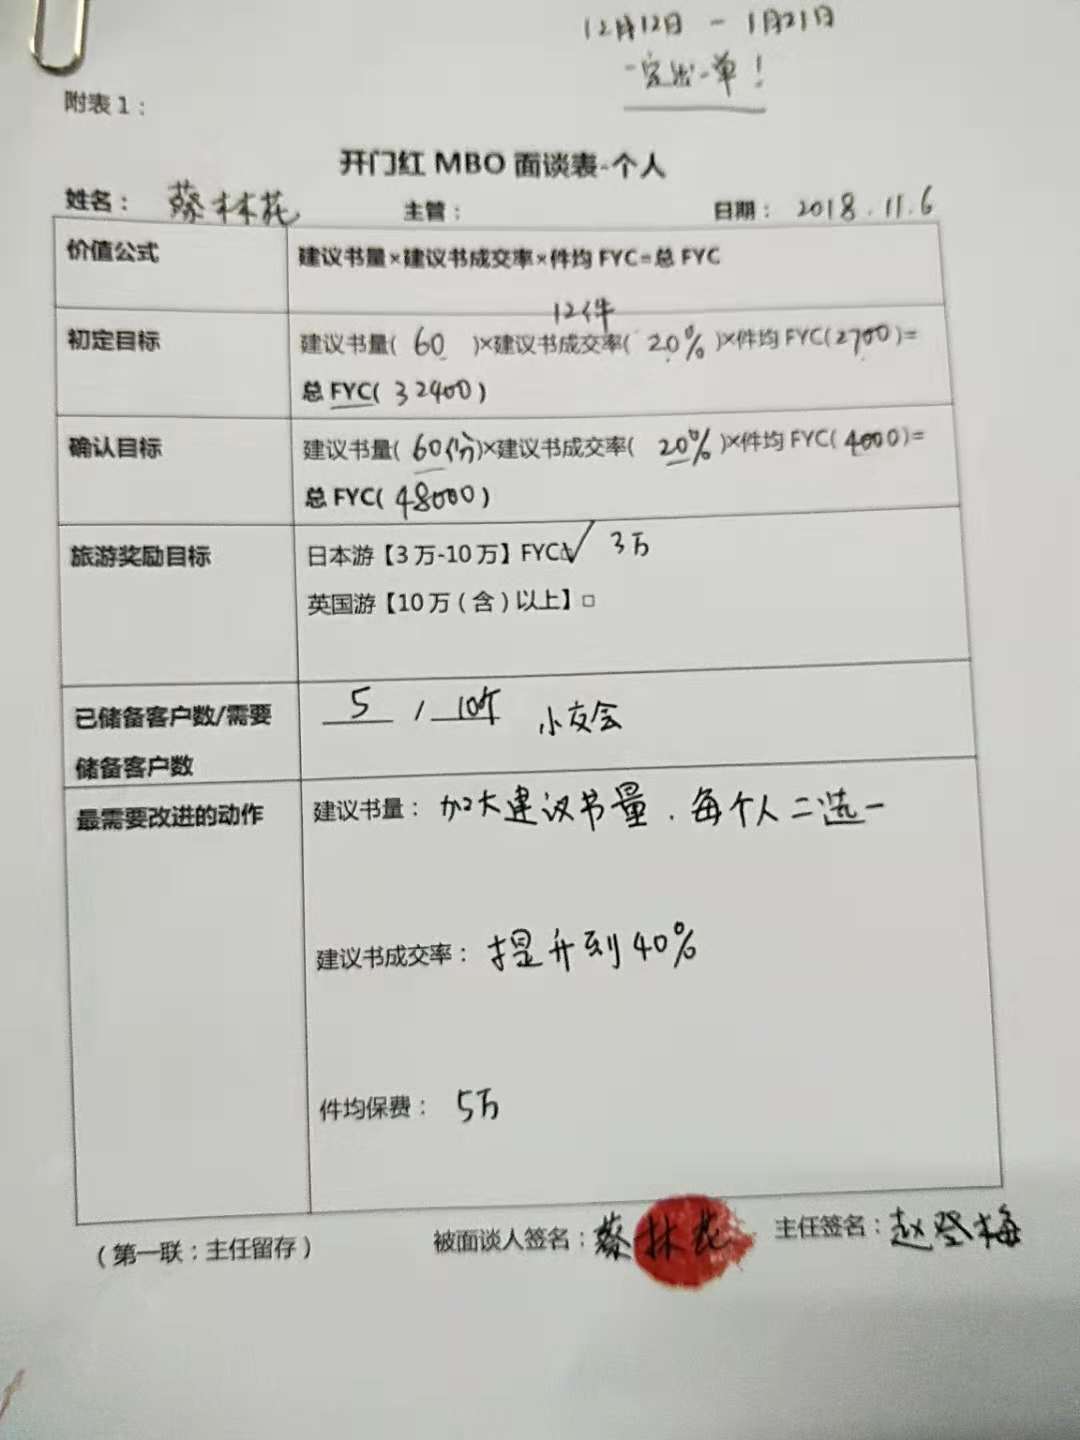 12月12日 - 1月21日
一定出一单！
附表1：
开门红 MBO 面谈表-个人
姓名： 蔡林花 主管： 日期： 2018.11.6
价值公式 建议书量×建议书成交率×件均 FYC=总 FYC
12件
初定目标 建议书量( 60 )×建议书成交率( 20% )×件均 FYC(2700)=
总 FYC( 32400 )
确认目标 建议书量( 60份 )×建议书成交率( 20% )×件均 FYC( 4000 )=
总 FYC( 48000 )
旅游奖励目标 日本游【3 万-10 万】FYC☑ 3万
英国游【10 万（含）以上】□
已储备客户数/需要 5 / 10个 小友会
储备客户数
最需要改进的动作 建议书量： 加大建议书量．每个人二选一
建议书成交率： 提升到40%
件均保费： 5万
（第一联：主任留存） 被面谈人签名：蔡林花 主任签名：赵登梅